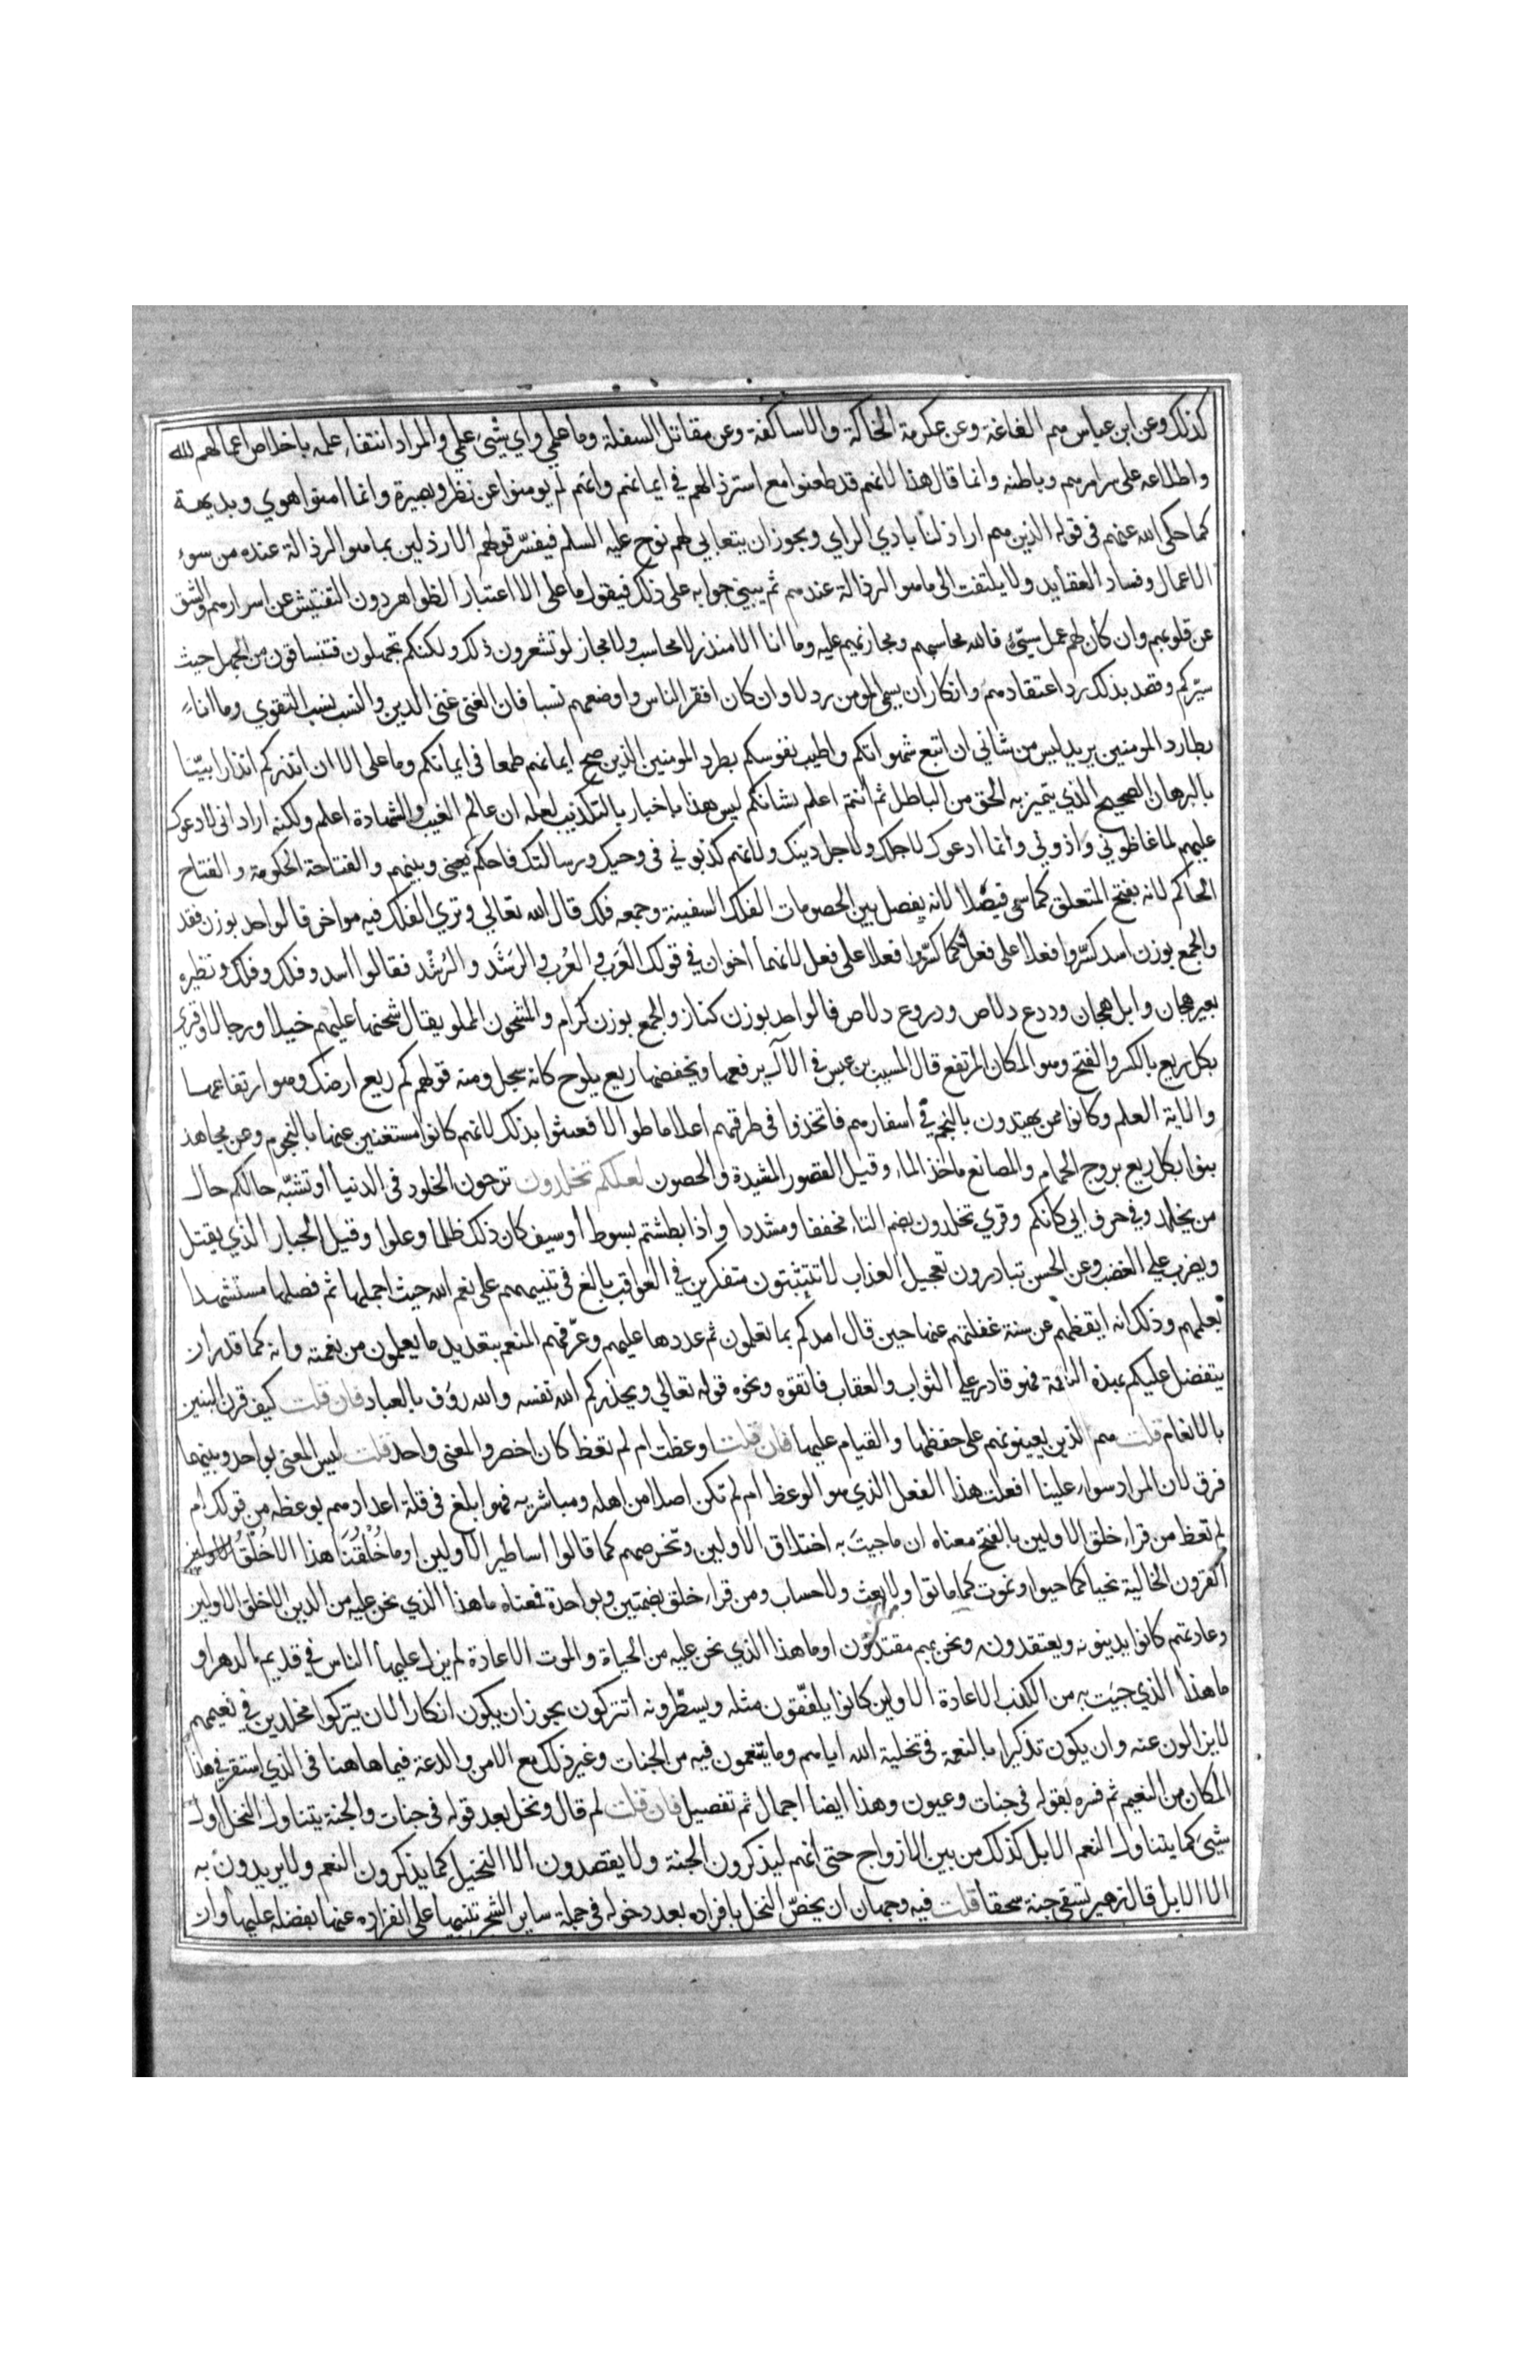 كذلك وعن ابن عباس هم الغاغة وعن عكرمة الحاكة والاساكفة وعن مقاتل السفلة وما علمي واي شيء علمي والمراد انتفاء علمه باخلاص اعمالهم لله
واطلاعه على سرايرهم وباطنه وانما قال هذا لانهم قد طعنوا مع استرذالهم في ايمانهم وانهم لم يومنوا عن نظر وبصيرة وانما امنوا هوي وبديهة
كما حكى الله عنهم في قوله الذين هم اراذلنا بادي الراي ويجوز ان يتغابي لهم نوح عليه السلم فيفسّر قولهم الارذلين بما هو الرذالة عنده من سوء
الاعمال وفساد العقايد ولا يلتفت الى ما هو الرذالة عندهم ثم يبني جوابه على ذلك فيقول ما على الا اعتبار الظواهر دون التفتيش عن اسرارهم والشق
عن قلوبهم وان كان لهم عمل سيّئ فالله محاسبهم ومجازيهم عليه وما انا الا منذر لا محاسب ولا مجاز لو تشعرون ذلك ولكنكم تجهلون فتنساقون من الجهل حيث
سيّركم وقصد بذلك رد اعتقادهم وانكار ان يسمى المومن رذلا وان كان افقر الناس واوضعهم نسبا فان الغنى غنى الدين والنسب نسب التقوي وما انا
بطارد المومنين يريد ليس من شاني ان اتبع شهواتكم واطيب نفوسكم بطرد المومنين الذين صح ايمانهم طمعا في ايمانكم وما على الا ان انذركم انذارا بيّنا
بالبرهان الصحيح الذي يتميز به الحق من الباطل ثم انتم اعلم بشانكم ليس هذا باخبار بالتكذيب لعلمه ان عالم الغيب والشهادة اعلم ولكنه اراد اني لا دعوك
عليهم لما غاظوني واذوني وانما ادعوك لاجلك ولاجل دينك ولانهم كذبوني في وحيك ورسالتك فاحكم بيني وبينهم والفتاحة الحكومة والفتاح
الحاكم لانه يفتح المتعلق كما سمى فيصلا لانه يفصل بين الخصومات الفلك السفينة وجمعه فلك قال الله تعالي وتري الفلك فيه مواخر فالواحد بوزن فقد
والجمع بوزن اسد كسّروا فعلا على فعل كما كسّروا فعلا على فعل لانهما اخوان في قولك العَرَب والعُرب والرَشَد والرُشْد فقالوا اسد وفلك وفلك ونظيره
بعير هجان وابل هجان ودرع دلاص ودروع دلاص فالواحد بوزن كناز والجمع بوزن كرام والمشحون المملو يقال شحنها عليهم خيلا ورجالا وقري
بكل ريع بالكسر والفتح وهو المكان المرتفع قال المسيب بن عيس في الآل يرفعها ويخفضها ريع يلوح كانه سجل ومنه قولهم كم ريع ارضك وهو ارتفاعها
والاية العلم وكانوا ممن يهتدون بالنجم في اسفارهم فاتخذوا في طرقهم اعلاما طوالا فعبثوا بذلك لانهم كانوا مستغنين عنها بالنجوم وعن مجاهد
بنوا بكل ريع بروج الحمام والمصانع ماخذ الماء وقيل القصور المشيدة والحصون لعلكم تخلدون ترجون الخلود في الدنيا او تشبّه حالكم حال
من يخلد وفي حرف ابي كانكم وقري تخلدون بضم التاء مخففا ومشددا واذا بطشتم بسوط او سيف كان ذلك ظلما وعلوا وقيل الجبار الذي يقتل
ويضرب على الغضب وعن الحسن تبادرون تعجيل العذاب لا تتثبتون متفكرين في العواقب بالغ في تنبيههم على نعم الله حيث اجملها ثم فصلها مستشهدا
بعلمهم وذلك انه ايقظهم عن سنة غفلتهم عنها حين قال امدكم بما تعلمون ثم عددها عليهم وعرّفهم المنعم بتعديد ما يعلمون من نعمته وانه كما قدر ان
يتفضل عليكم بهذه النعمة فهو قادر على الثواب والعقاب فاتقوه ونحوه قوله تعالي ويحذركم الله نفسه والله روف بالعباد فان قلت كيف قرن البنين
بالانعام قلت هم الذين يعينونهم على حفظها والقيام عليها فان قلت اوعظت ام لم تعظ كان اخصر والمعنى واحد قلت ليس المعنى بواحد وبينهما
فرق لان المراد سواء علينا افعلت هذا الفعل الذي هو الوعظ ام لم تكن اصلا من اهله ومباشريه فهو ابلغ في قلة اعدادهم بوعظه من قولك ام
لم تعظ من قراء خلق الاولين بالفتح معناه ان ما جيتَ به اختلاق الاولين وتخرصهم كما قالوا اساطير الاولين او ما خُلْقُنَا هذا الا خُلقُ الاولين
القرون الخالية نحيا كما حيوا ونموت كما ماتوا ولا بعث ولا حساب ومن قراء خلق بضمتين وبواحدة فمعناه ما هذا الذي نحن عليه من الدين الا خلق الاولين
وعادتهم كانوا يدينونه ويعتقدونه ونحن بهم مقتدون او ما هذا الذي نحن عليه من الحياة والموت الا عادة لم يزل عليها الناس في قديم الدهر او
ما هذا الذي جيت به من الكذب الا عادة الاولين كانوا يلفّقون مثله ويسطّرونه اتتركون يجوز ان يكون انكارا لان يتركوا مخلدين في نعيمهم
لا يزالون عنه وان يكون تذكيرا بالنعمة في تخلية الله اياهم وما يتنعمون فيه من الجنات وغير ذلك مع الامن والدعة فيما هاهنا في الذي استقر في هذا
المكان من النعيم ثم فسره بقوله في جنات وعيون وهذا ايضا اجمال ثم تفصيل فان قلت لم قال ونخل بعد قوله في جنات والجنة يتناول النخل اول
شيء كما يتناول النعم الابل كذلك من بين الازواج حتى انهم ليذكرون الجنة ولا يقصدون الا النخيل كما يذكرون النعم ولا يريدون به
الا الابل قال زهير تسقى جنة سحقا قلت فيه وجهان ان يخصّ النخل بافراده بعد دخوله في جملة ساير الشجر تنبيها على انفراده عنها بفضله عليها وان